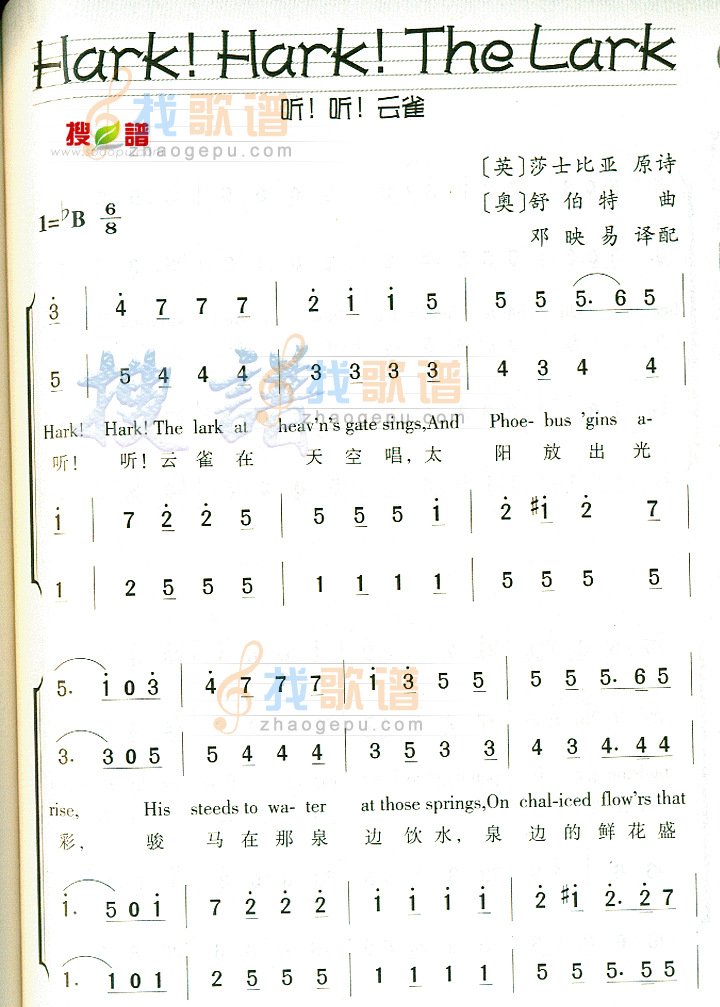 Hark! Hark! The Lark
听！听！云雀
找歌谱
zhaogepu.com
搜 譜
www.sooopu.com
［英］莎士比亚 原诗
［奥］舒伯特 曲
邓映易 译配
1=♭B 6/8
3̇ | 4̇ 7 7 7 | 2̇ 1̇ 1̇ 5 | 5 5 5. 6 5
5 | 5 4 4 4 | 3 3 3 3 | 4 3 4 4
搜譜
找歌谱
zhaogepu.com
Hark! Hark! The lark at heav'n's gate sings,And Phoe- bus 'gins a-
听！ 听！云雀在 天空唱，太 阳放出光
1̇ | 7 2̇ 2̇ 5 | 5 5 5 1̇ | 2̇ #1̇ 2̇ 7
1 | 2 5 5 5 | 1 1 1 1 | 5 5 5 5
找歌谱
zhaogepu.com
5. 1̇ 0 3̇ | 4̇ 7 7 7 | 1̇ 3̇ 5 5 | 5 5 5. 6 5
3. 3 0 5 | 5 4 4 4 | 3 5 3 3 | 4 3 4. 4 4
rise, His steeds to wa- ter at those springs,On chal-iced flow'rs that
彩， 骏 马在那泉 边饮水，泉 边的鲜花盛
1̇. 5 0 1̇ | 7 2̇ 2̇ 2̇ | 1̇ 1̇ 1̇ 1̇ | 2̇ #1̇ 2̇. 2̇ 7
1. 1 0 1 | 2 5 5 5 | 1 1 1 1 | 5 5 5. 5 5